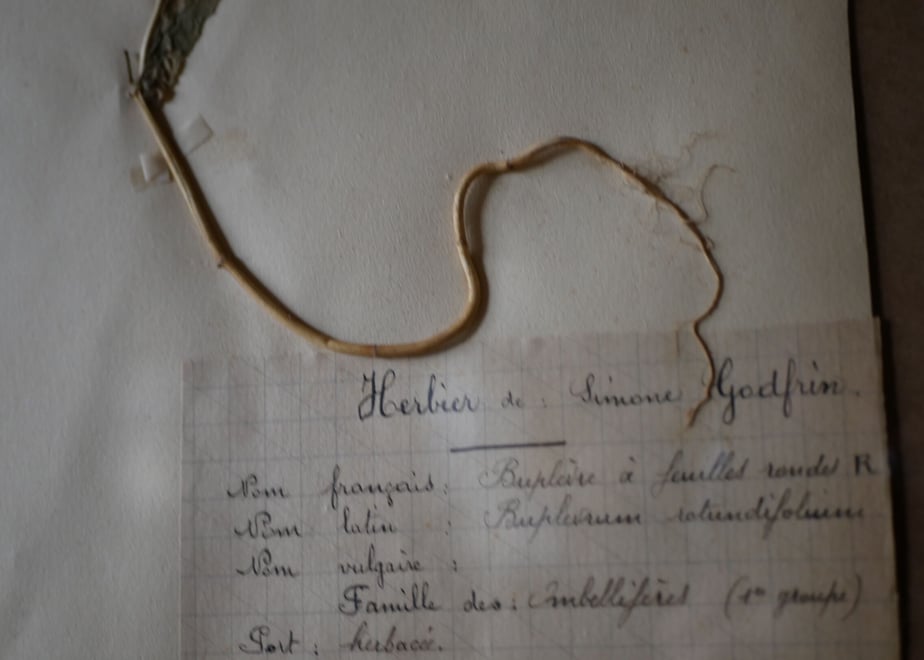 Herbier de : Simone Godfrin.
Nom français : Buplèvre à feuilles rondes R
Nom latin : Buplevrum rotundifolium
Nom vulgaire :
Famille des : Ombellifères (1er groupe)
Port : herbacée.